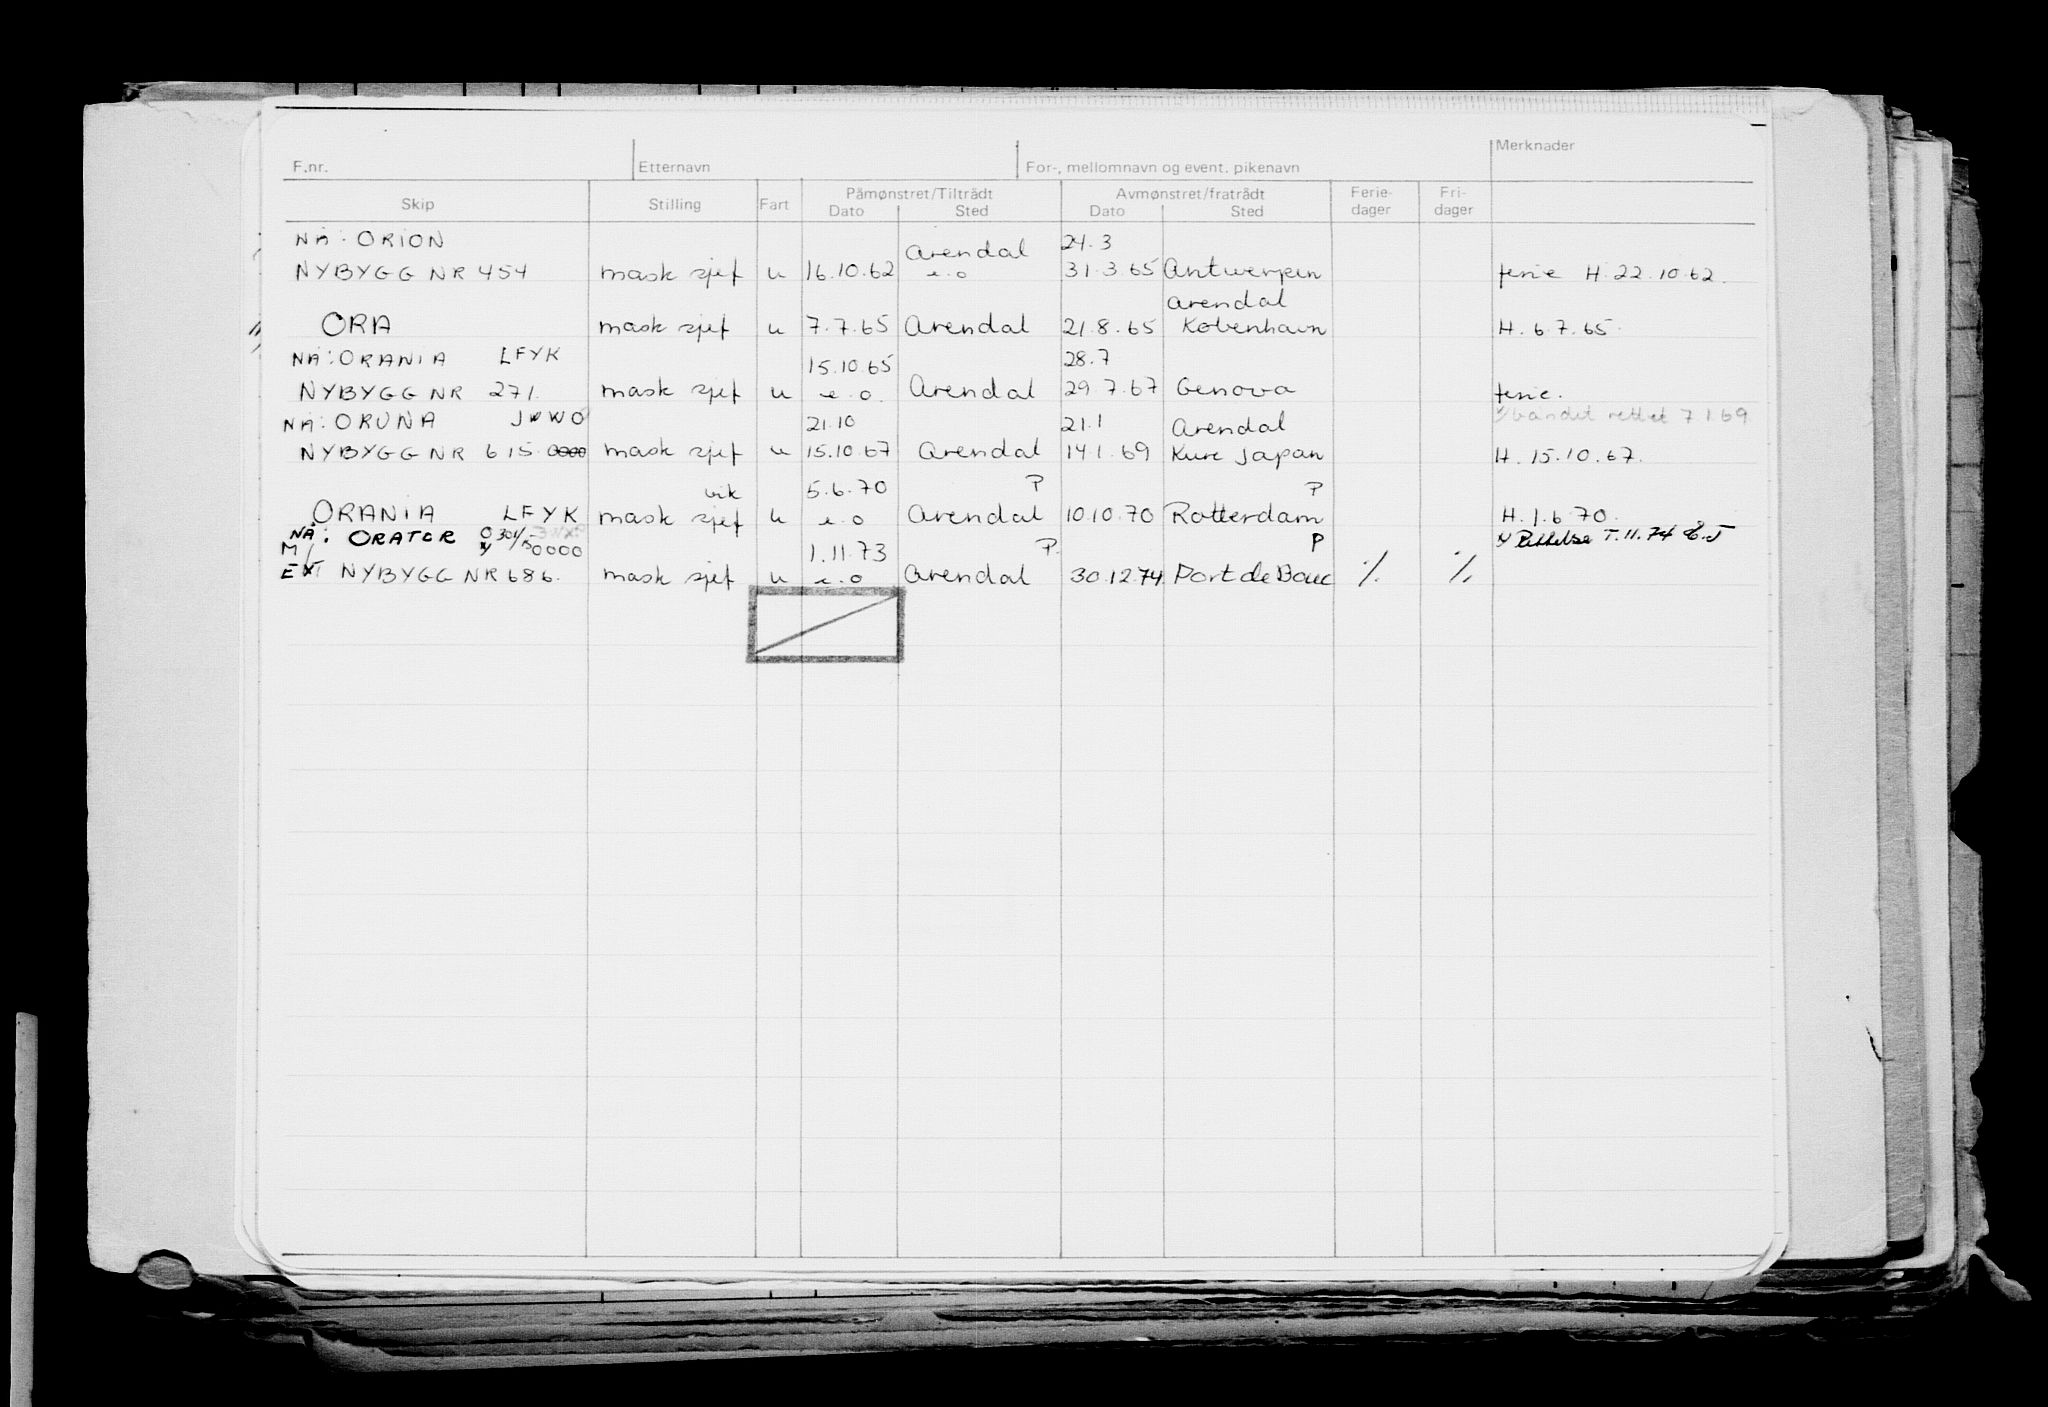 F.nr. Etternavn For-, mellomnavn og event. pikenavn Merknader
Skip Stilling Fart Påmønstret/Tiltrådt Avmønstret/fratrådt Ferie-dager Fri-dager
Dato Sted Dato Sted
NÅ: ORION Arendal 24.3
NYBYGG NR 454 mask sjef u 16.10.62 e.o 31.3.65 Antwerpen ferie H. 22.10.62.
Arendal
ORA mask sjef u 7.7.65 Arendal 21.8.65 København H. 6.7.65.
NÅ: ORANIA LFYK 15.10.65 28.7
NYBYGG NR 271. mask sjef u e.o. Arendal 29.7.67 Genova ferie.
NÅ: ORUNA JWWO 21.10 21.1 Arendal båndet rettet 7.1.69
NYBYGG NR 615. 0000 mask sjef u 15.10.67 Arendal 14.1.69 Kure Japan H. 15.10.67.
vik 5.6.70 P P
ORANIA LFYK mask sjef u e.o Arendal 10.10.70 Rotterdam H. 1.6.70.
NÅ: ORATOR Rettelse T.11.74
M/ 0000 1.11.73 P. P
EX NYBYGG NR 686. mask sjef u e.o Arendal 30.12.74 Port de Bouc % %